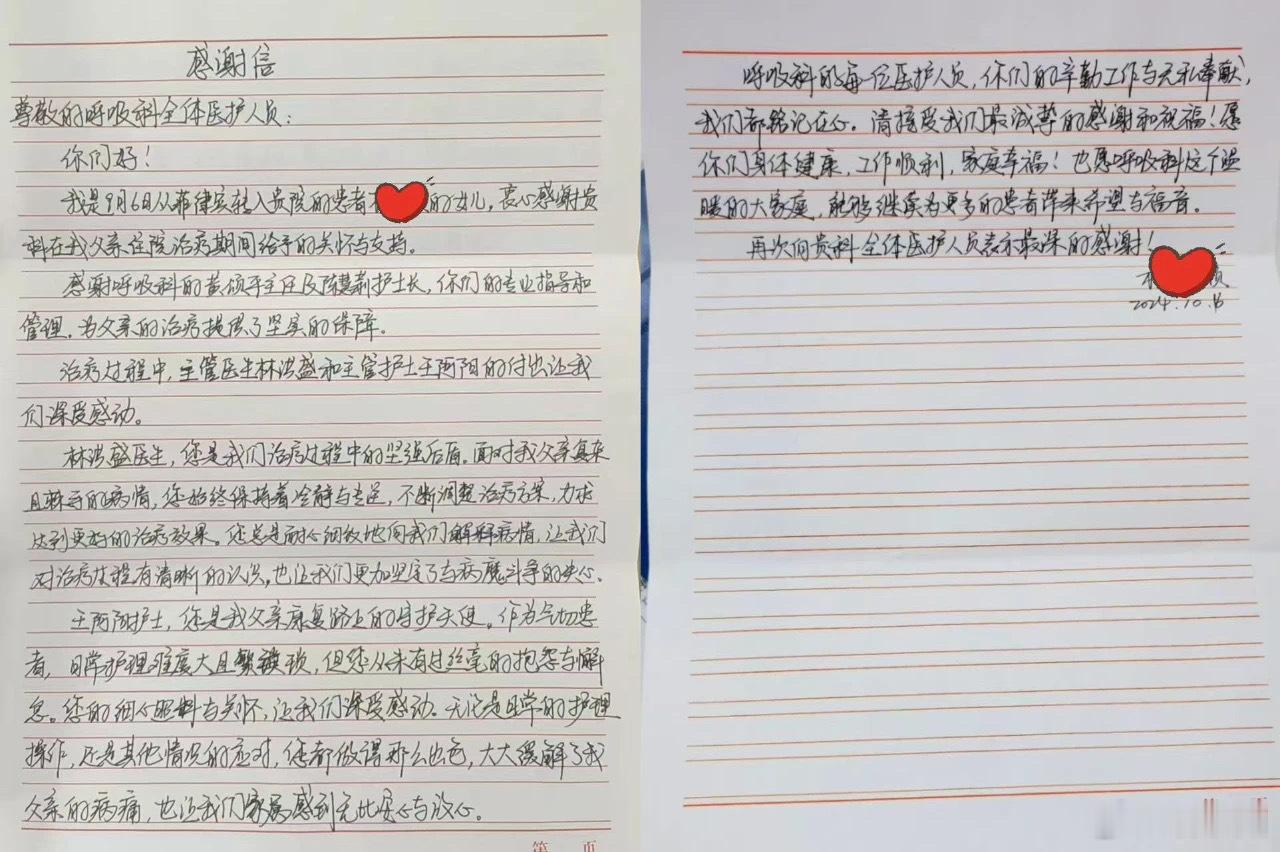 感谢信
尊敬的呼吸科全体医护人员:
你们好!
我是9月6日从菲律宾转入贵院的患者 的女儿,衷心感谢贵
科在我父亲住院治疗期间给予的关怀与支持。
感谢呼吸科的黄颂平主任及陈慧莉护士长,你们的专业指导和
管理,为父亲的治疗提供了坚实的保障。
治疗过程中,主管医生林洪盛和主管护士王两阳的付出让我
们深受感动。
林洪盛医生,您是我们治疗过程中的坚强后盾。面对我父亲复杂
且棘手的病情,您始终保持着冷静与专注,不断调整治疗方案,力求
达到更好的治疗效果。您总是耐心细致地向我们解释病情,让我们
对治疗过程有清晰的认识,也让我们更加坚定了与病魔斗争的决心。
王两阳护士,您是我父亲康复路上的守护天使。作为气切患
者,日常护理难度大且繁琐,但您从未有过丝毫的抱怨与懈
怠。您的细心照料与关怀,让我们深受感动。无论是日常的护理
操作,还是其他情况的应对,您都做得那么出色,大大缓解了我
父亲的病痛,也让我们家属感到无比安心与放心。
第 页
呼吸科的每一位医护人员,你们的辛勤工作与无私奉献,
我们都铭记在心。请接受我们最诚挚的感谢和祝福!愿
你们身体健康,工作顺利,家庭幸福!也愿呼吸科这个温
暖的大家庭,能够继续为更多的患者带来希望与福音。
再次向贵科全体医护人员表示最深的感谢!
2024.10.